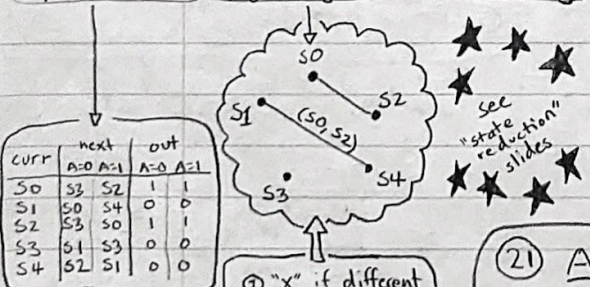 curr next out
A=0 A=1 A=0 A=1
S0 S3 S2 1 1
S1 S0 S4 0 0
S2 S3 S0 1 1
S3 S1 S3 0 0
S4 S2 S1 0 0
S0
S2
S1
(S0,S2)
S4
S3
see
"state
reduction"
slides
① "x" if different
21 A